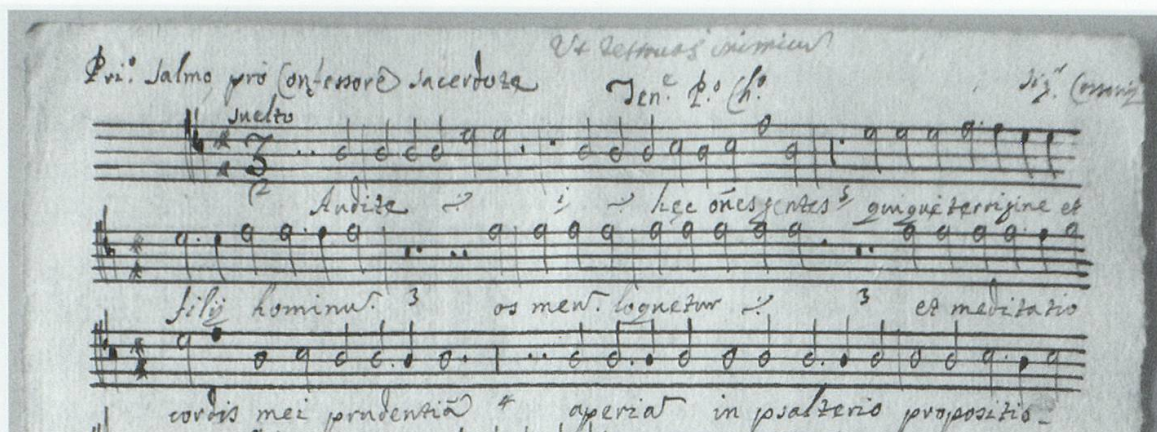 Ut destruas inimicum
Pri.º Salmo pro Confessore sacerdote Ten.e P.º Ch.º Sig.r
suelto
3
2
Audite hęc oēs gentes quiqué terrigine et
filij hominū. 3 os meū. loquetur 3 et meditatio
cordis mei prudentiā 4 aperiā in psalterio propositio-